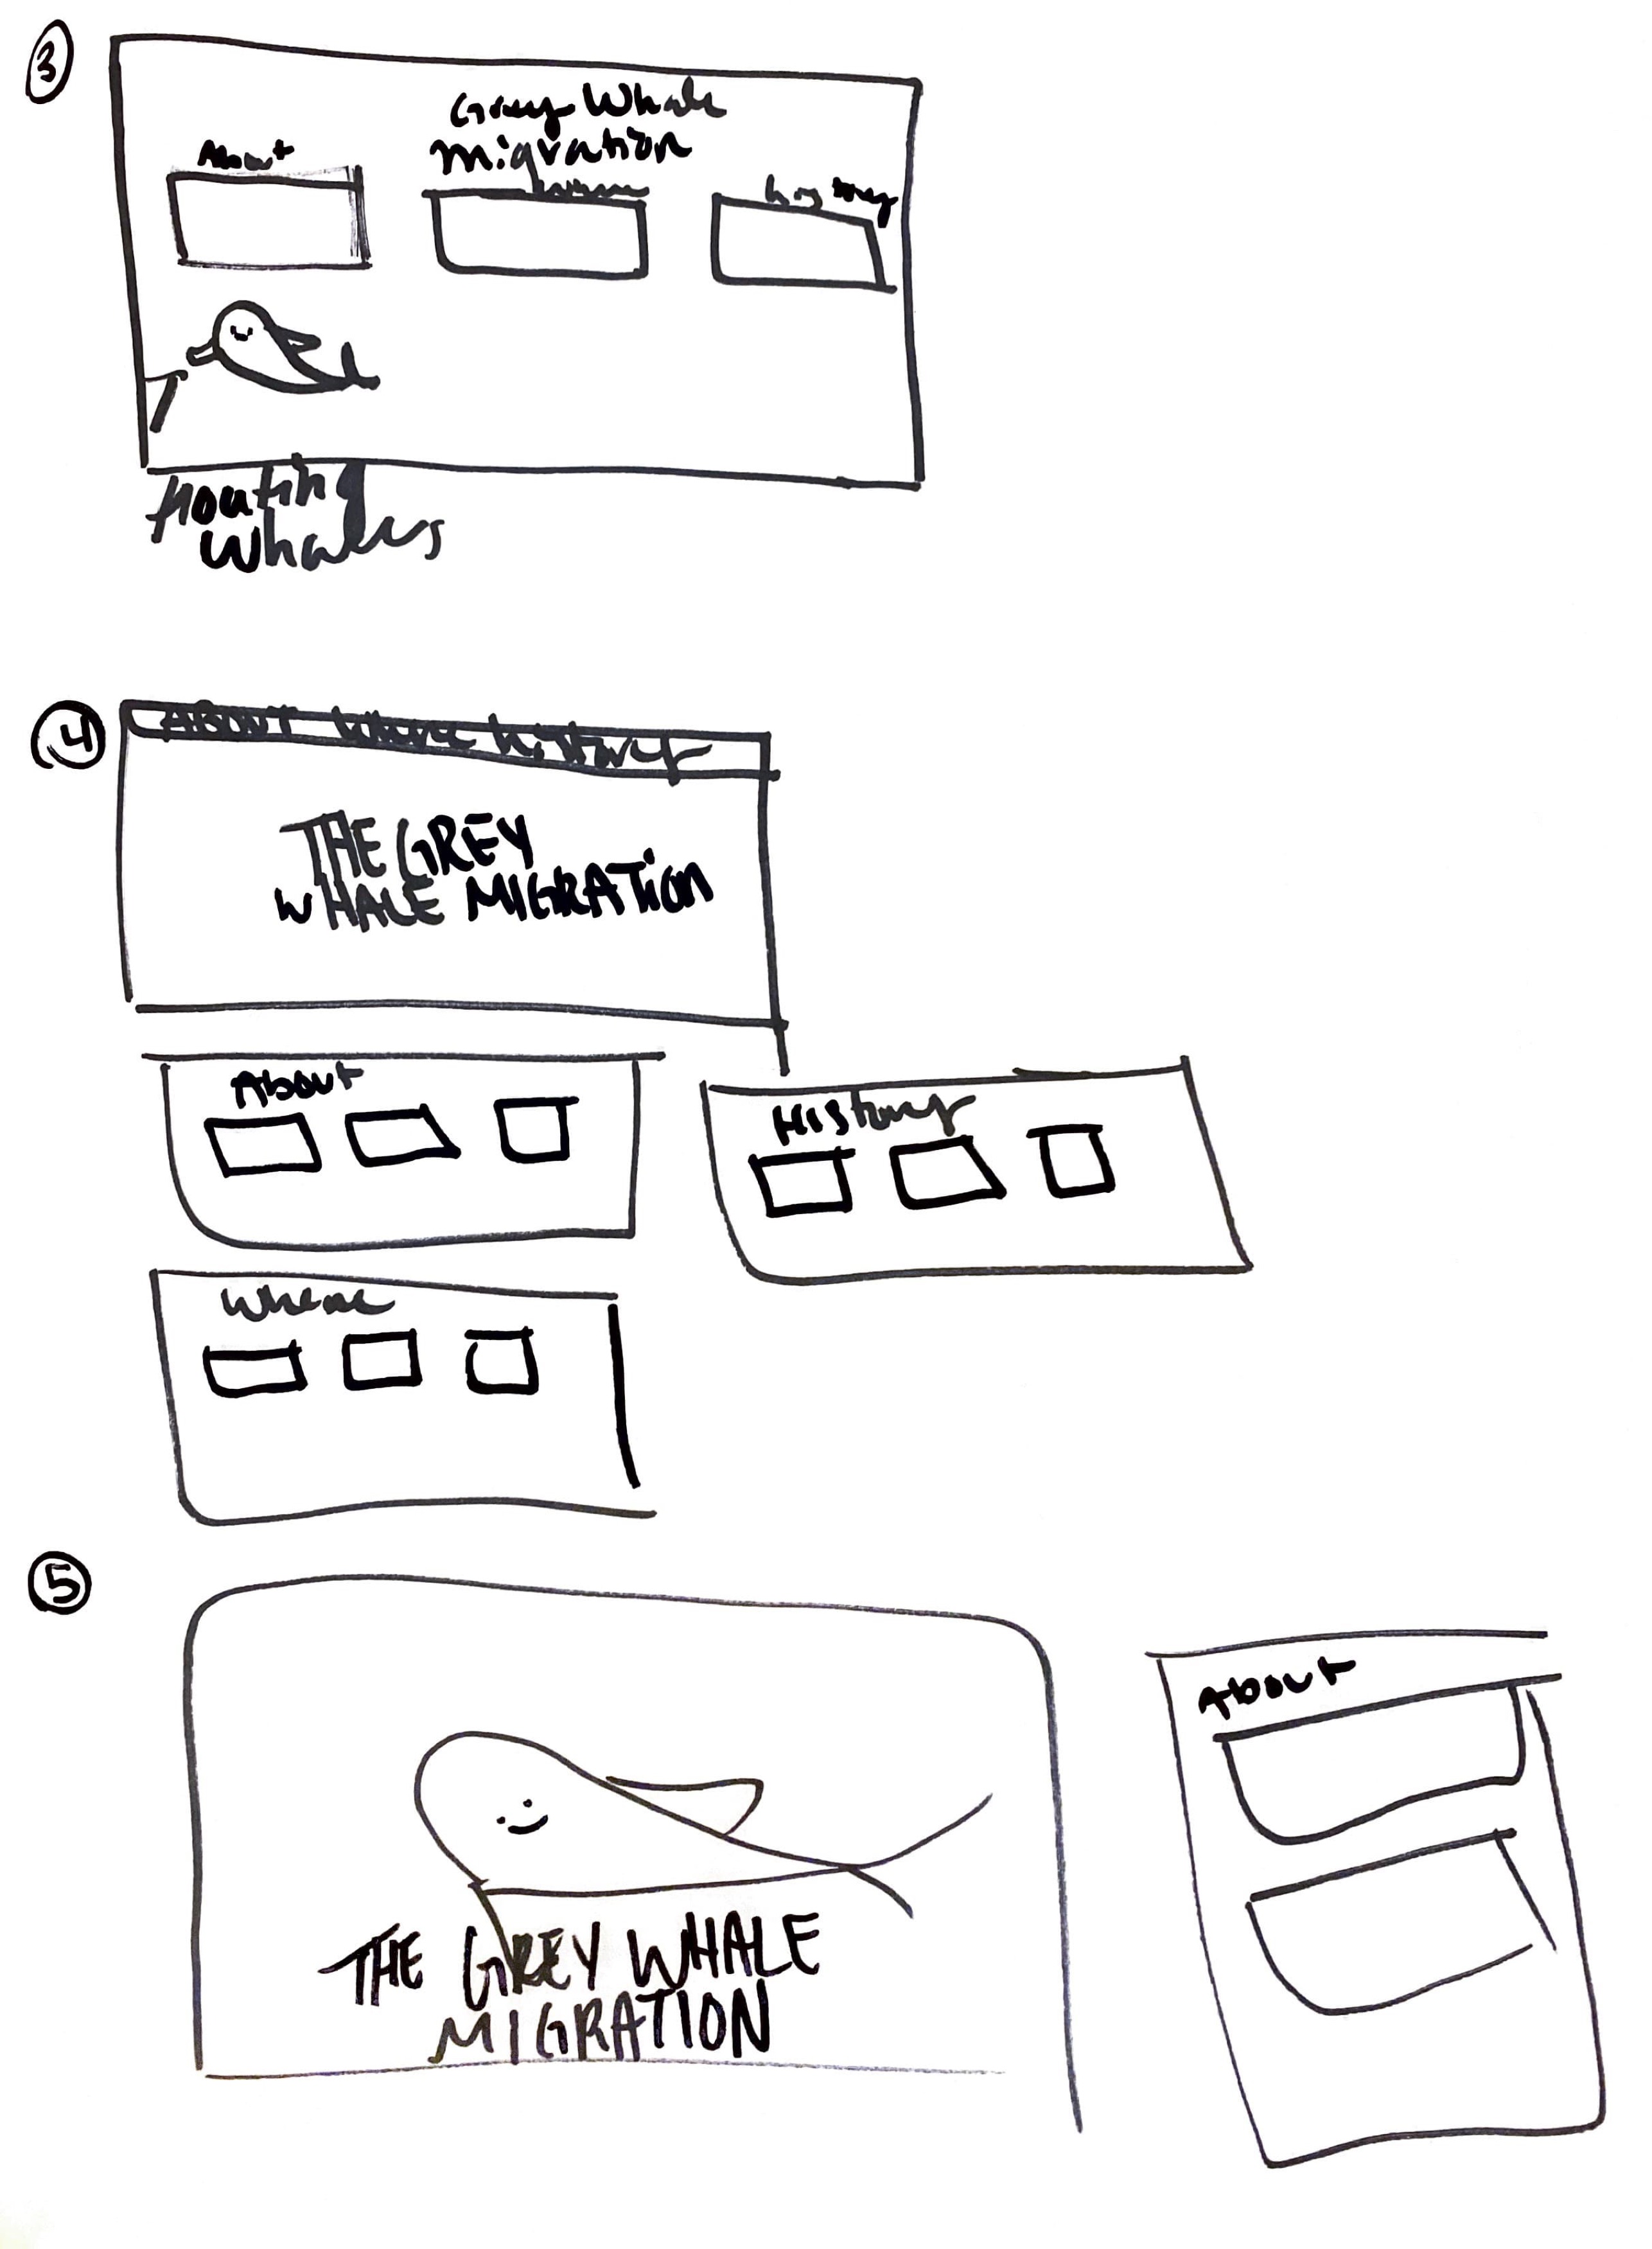 3
Grey Whale
migration
About
where
history
floating
whales
4
ABOUT where history
THE GREY
WHALE MIGRATION
About
History
Where
5
About
THE GREY WHALE
MIGRATION